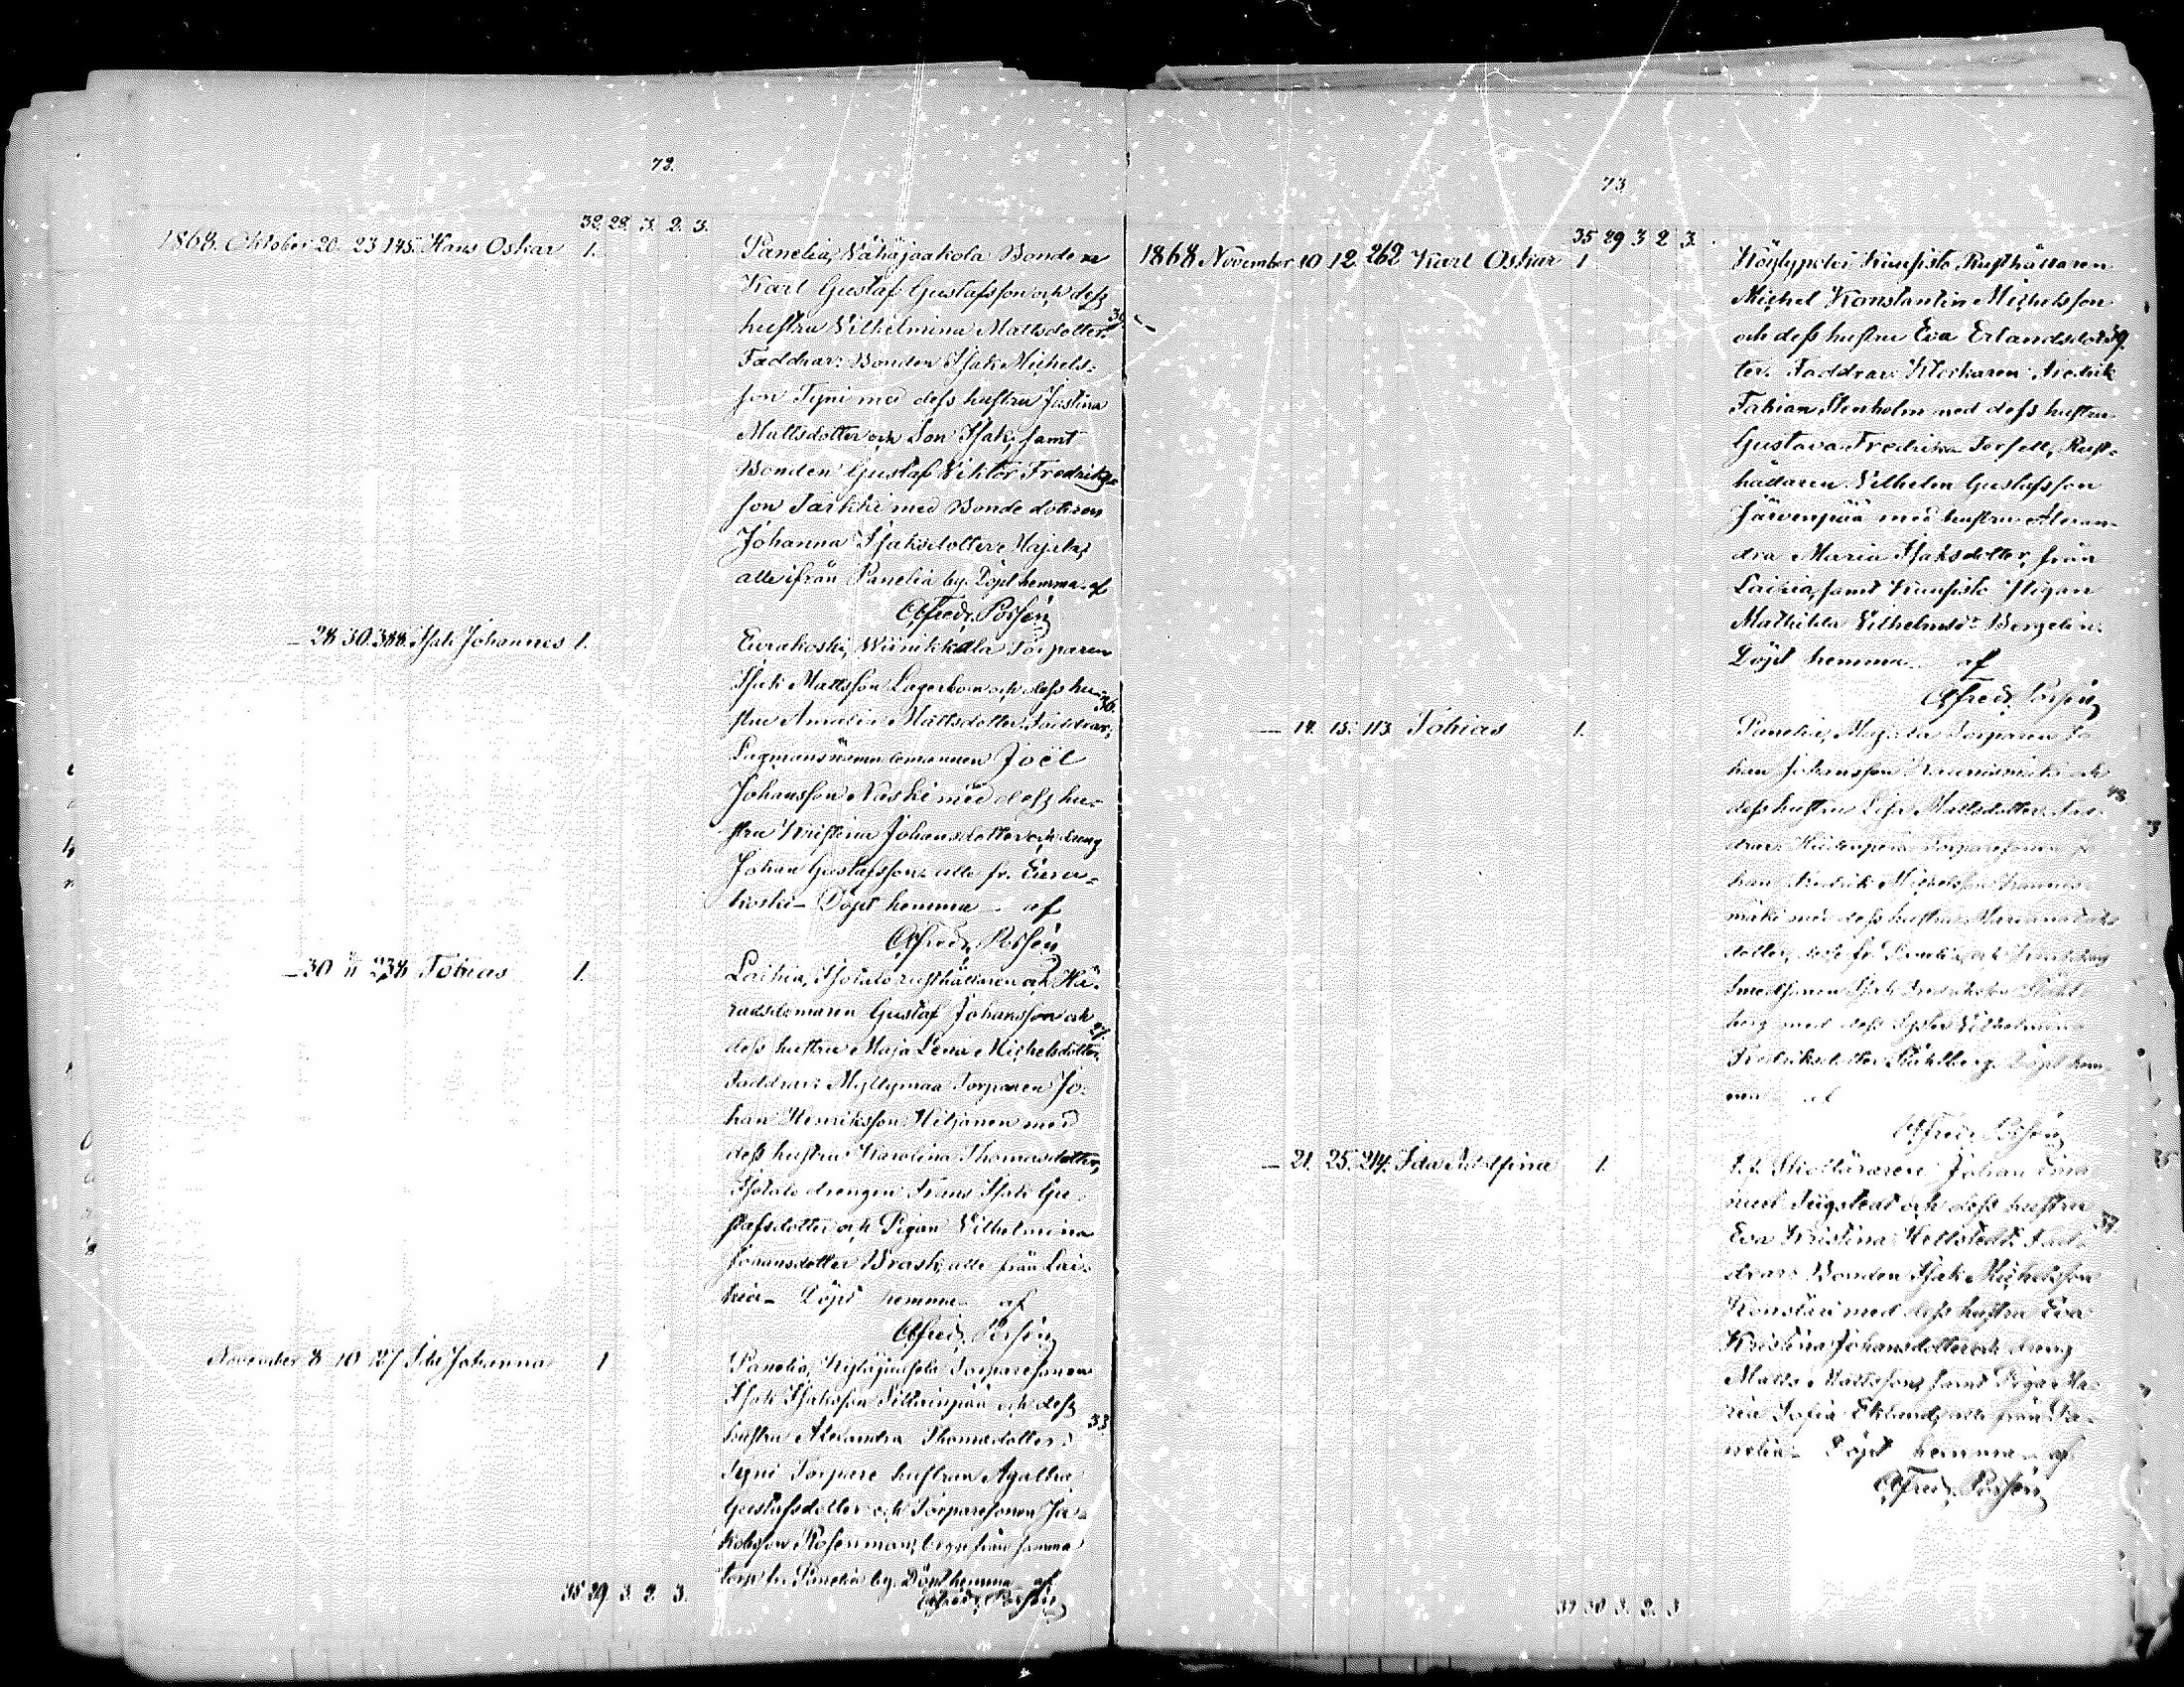 72.
32 28. 3. 2. 3.
1868. Oktober 20. 23 145. Hans Oskar 1. Panelia, Vähäjaakola Bonden
Karl Gustaf Gustafsson och dess
hustru Vilhelmina Mattsdotter.
Faddrar: Bonden Isak Michels-
son Tyni med dess hustru Justina
Mattsdotter och Son Isak, samt
Bonden Gustaf Viktor Fredriks-
son Jaakki med Bonde dottren
Johanna Isaksdotter Majala,
alle ifrån Panelia by. Döpt hemma af
Alfred Porsén
— 28. 30. 388. Isak Johannes 1. Eurakoski, Wiinikkala Torparen
Isak Mattsson Lagerbom och dess hu- 36.
stru Amalia Mattsdotter. Faddrar:
Lagmansnämndemannen Joël
Johansson Naski med dess hu-
stru Kristina Johansdotter och dreng
Johan Gustafsson, alle fr. Eura-
koski — Döpt hemma — af
Alfred Porsén
— 30 " 238 Tobias 1. Laihia, Isotalo rusthållaren och Hä-
radsdomaren Gustaf Johansson och
dess hustru Maja Lena Michelsdotter.
Faddrar: Myllymaa Torparen Jo-
han Henriksson Hiljanen med
dess hustru Karolina Thomasdotter,
Isotalo drengen Frans Isak Gu-
stafsdotter och Pigan Vilhelmina
Johansdotter Brask, alle från Lai-
hia — Döpt hemma — af
Alfred Porsén
November 8 10 Ida Johanna 1 Panelia, Torparesonen
Isak Isaksson och dess
hustru Alexandra Thomasdotter. 33.
Tyni Torpare hustrun Agatha
Gustafsdotter och Torparesonen Ja-
kobsson Rosenman, begge från samma
torp fr. Panelia by. Döpt hemma af
35 29. 3. 2. 3. Alfred Porsén
73.
35 29 3 2 3.
1868 November 10 12. 262 Karl Oskar 1 Köylypolvi Kuusisto Rusthållaren
Michel Konstantin Michelsson
och dess hustru Eva Erlandsdot- 39.
ter. Faddrar: Klockaren Fredrik
Fabian Stenholm med dess hustru
Gustava Fredrika Forsell, Rust-
hållaren Vilhelm Gustafsson
Järvenpää med hustru Alexan-
dra Maria Isaksdotter, från
Laihia, samt Kuusisto Pigan
Mathilda Vilhelmsdr Bergelin.
Döpt hemma af
Alfred Porsén
— 14. 15. 113. Tobias 1. Panelia, Majala Torparen Jo-
han Johansson och
dess hustru Lisa Mattsdotter. Fad-
drar: Torparesonen Jo-
han Fredrik Michelsson
mäki med dess hustru
dotter, fr. Panelia, och
Smedsonen Isak Fredriksson Ståhl-
berg med dess Syster Vilhelmina
Fredriksdotter Ståhlberg. Döpt hem-
ma af
Alfred Porsén
— 21. 25. 214. Ida Adolfina 1. Skolläraren Johan Ema-
nuel och dess hustru
Eva Kristina Fad- 37.
drar: Bonden Isak Michelsson
Konstari med dess hustru Eva
Kristina Johansdotter och dreng
Matts Mattsson, samt Piga Ma-
ria Sofia Eklund, alle från Pa-
nelia — Döpt hemma — af
Alfred Porsén
37 30 3. 2. 3